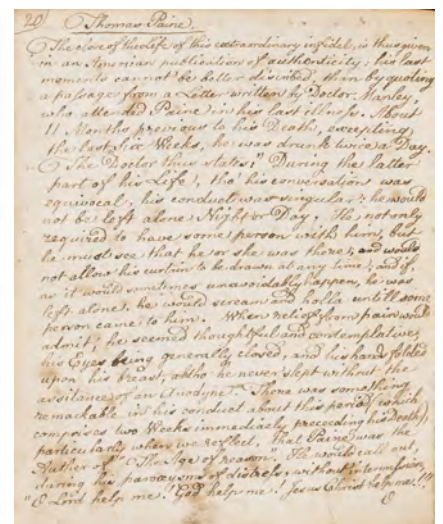 20) Thomas Paine.
The close of the Life of this extraordinary infidel, is thus given
in an American publication of authenticity; his last
moments cannot be better discribed, than by quoting
a passage from a Letter written by Doctor Manley,
who attended Paine in his last illness. About
11 Months previous to his Death, excepting
the last six Weeks, he was drunk twice a Day.
The Doctor thus states: "During the latter
part of his Life, tho' his conversation was
equivocal, his conduct was singular; he would
not be left alone Night or Day. He not only
required to have some person with him, but
he must see that he or she was there, and would
not allow his curtain to be drawn at any time; and if,
as it would sometimes unavoidably happen, he was
left alone, he would scream and holla untill some
person came to him. When relief from pain would
admit, he seemed thoughtful and contemplative,
his Eyes being generally closed, and his hands folded
upon his breast, altho' he never slept without the
assistance of an Anodyne. There was something
remarkable in his conduct about this period (which
comprises two Weeks immediately preceding his Death),
particularly when we reflect, that Paine was the
Author of "The Age of reason". He would call out,
during his paroxysms of distress, without intermission,
"O Lord help me! God help me! Jesus Christ help me!!"